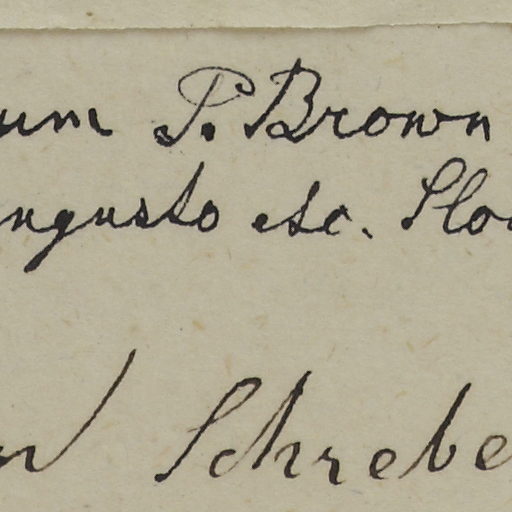 um P. Brown
angusto etc. Sloa
Schrebe